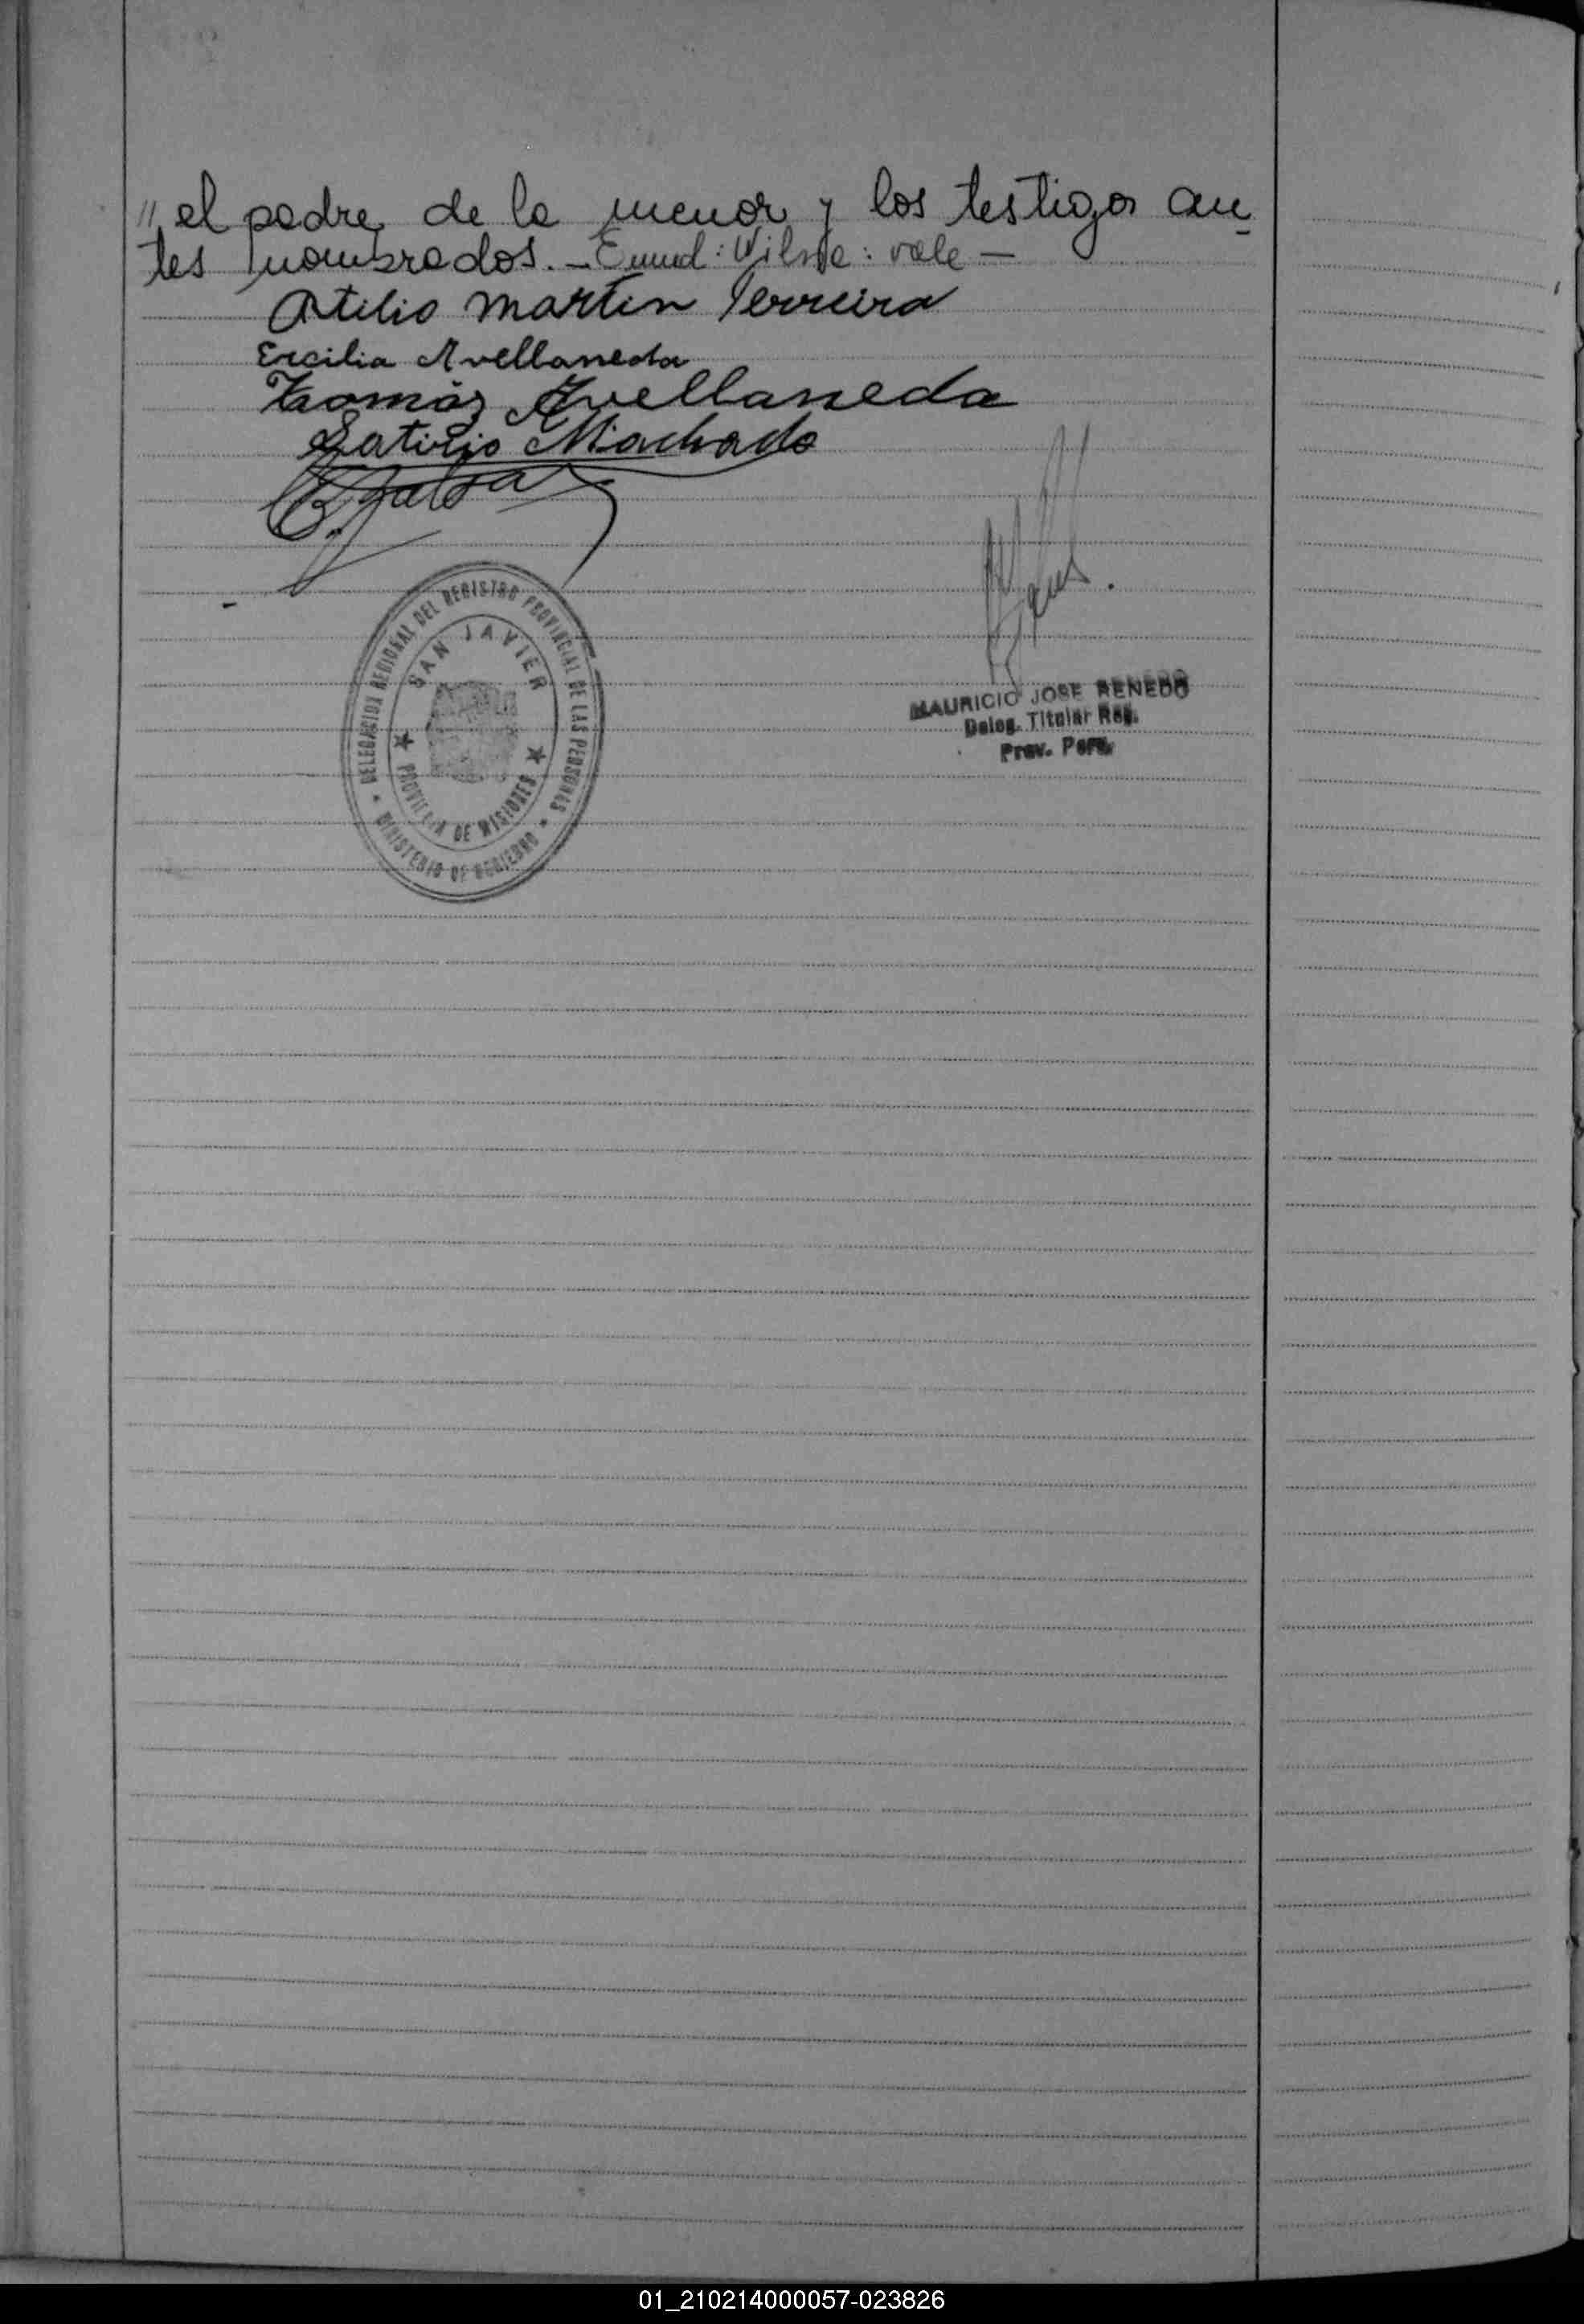 " el padre de la menor y los testigos an-
tes nombrados. - Enmd: Wilma: vale -
Atilio Martin Ferreira
Ercilia Avellaneda
Tomás Avellaneda
Satirio Machado
SAN JAVIER
DELEGACION REGIONAL DEL REGISTRO PROVINCIAL DE LAS PERSONAS
PROVINCIA DE MISIONES
MINISTERIO DE GOBIERNO
MAURICIO JOSE RENEDO
Deleg. Titular Reg.
Prov. Pers.
01_210214000057-023826